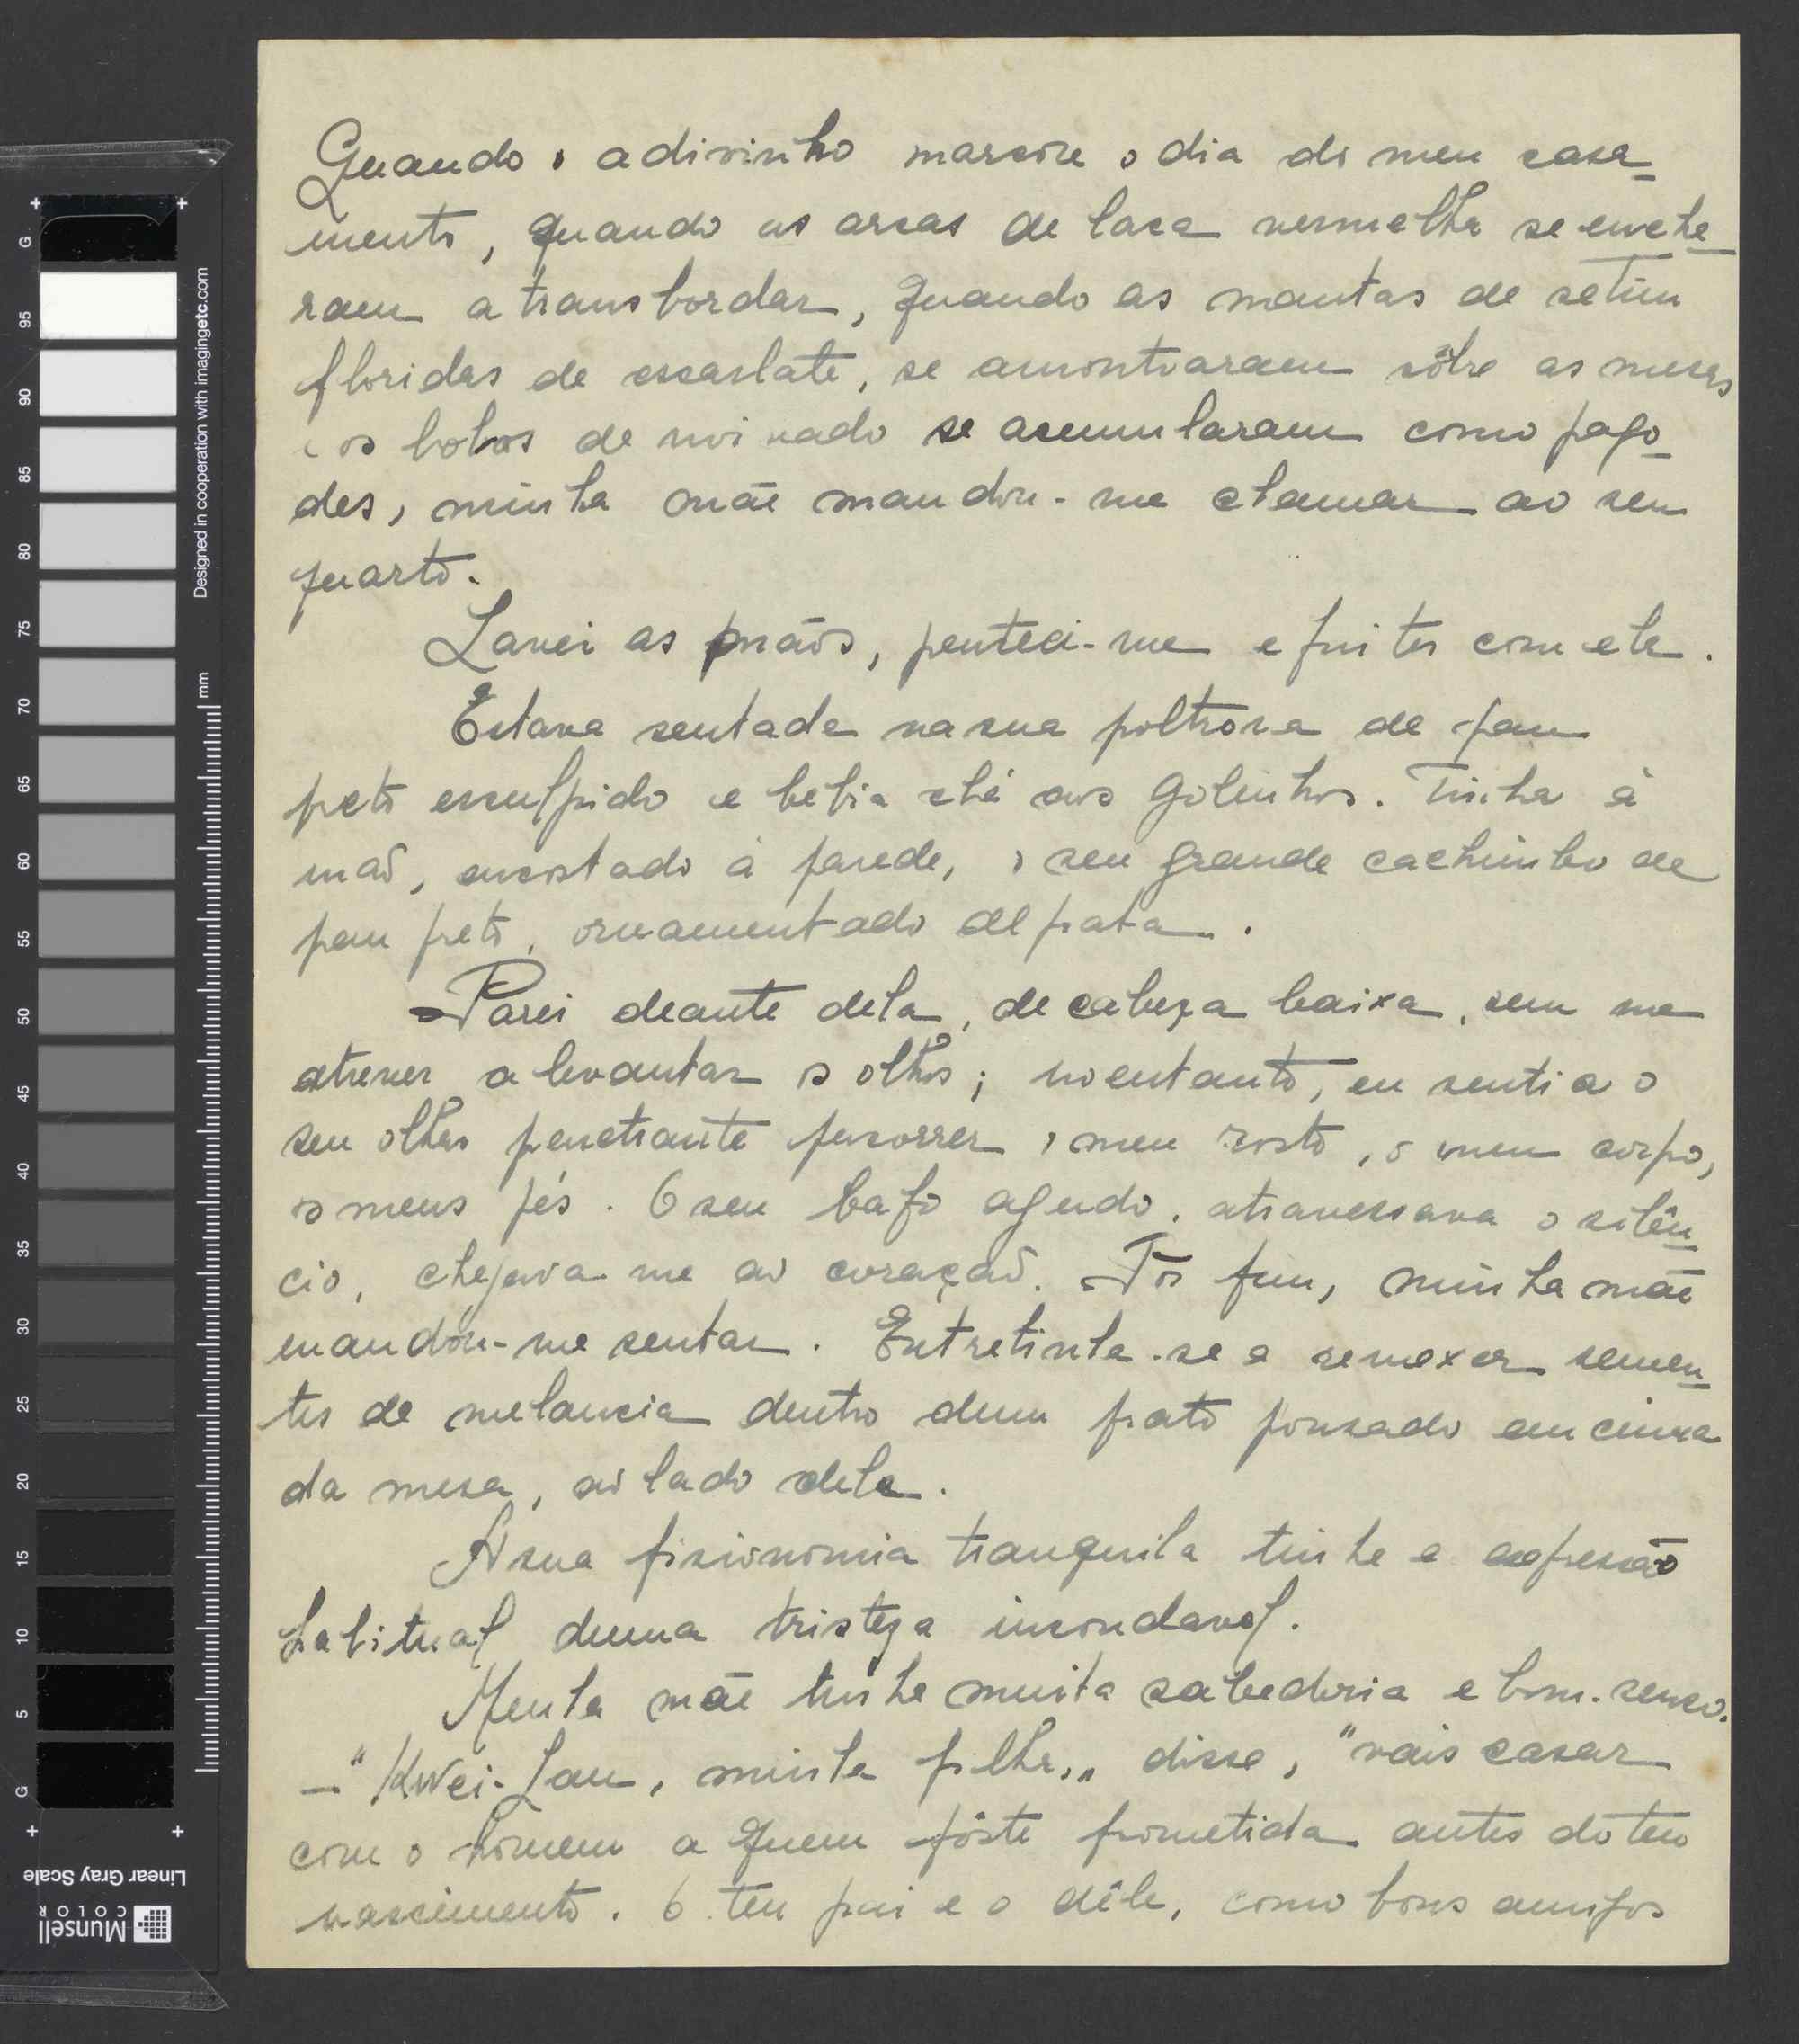 Quando o adivinho marcou o dia do meu casa-
mento, quando as arcas de laca vermelha se enche-
ram a transbordar, quando as mantas de setim
floridas de escarlate, se amontoaram sôbre as mesas
e os bolos de noivado se acumularam como pago-
des, minha mãe mandou-me chamar ao seu
quarto.
Lavei as mãos, penteei-me e fui ter com ela.
Estava sentada na sua poltrona de pau
preto esculpido e bebia chá aos golinhos. Tinha à
mão, encostado à parede, o seu grande cachimbo de
pau preto, ornamentado de prata.
Parei deante dela, de cabeça baixa, sem me
atrever a levantar os olhos; no entanto, eu sentia o
seu olhar penetrante percorrer o meu rosto, o meu corpo,
os meus pés. O seu bafo agudo, atravessava o silên-
cio, chegava-me ao coração. Por fim, minha mãe
mandou-me sentar. Entretinha-se a remexer semen-
tes de melancia dentro dum prato pousado em cima
da mesa, ao lado dela.
A sua fisionomia tranquila tinha a expressão
habitual duma tristeza insondavel.
Menha mãe tinha muita sabedoria e bom-senso.
—"Kwei-Lan, minha filha,„ disse, "vais casar
com o homem a quem fôste prometida antes do teu
nascimento. O teu pai e o dêle, como bons amigos
Designed in cooperation with imagingetc.com
mm
G
95
90
85
80
75
70
65
60
55
50
45
40
35
30
25
20
15
10
5
G
Linear Gray Scale
Munsell
COLOR